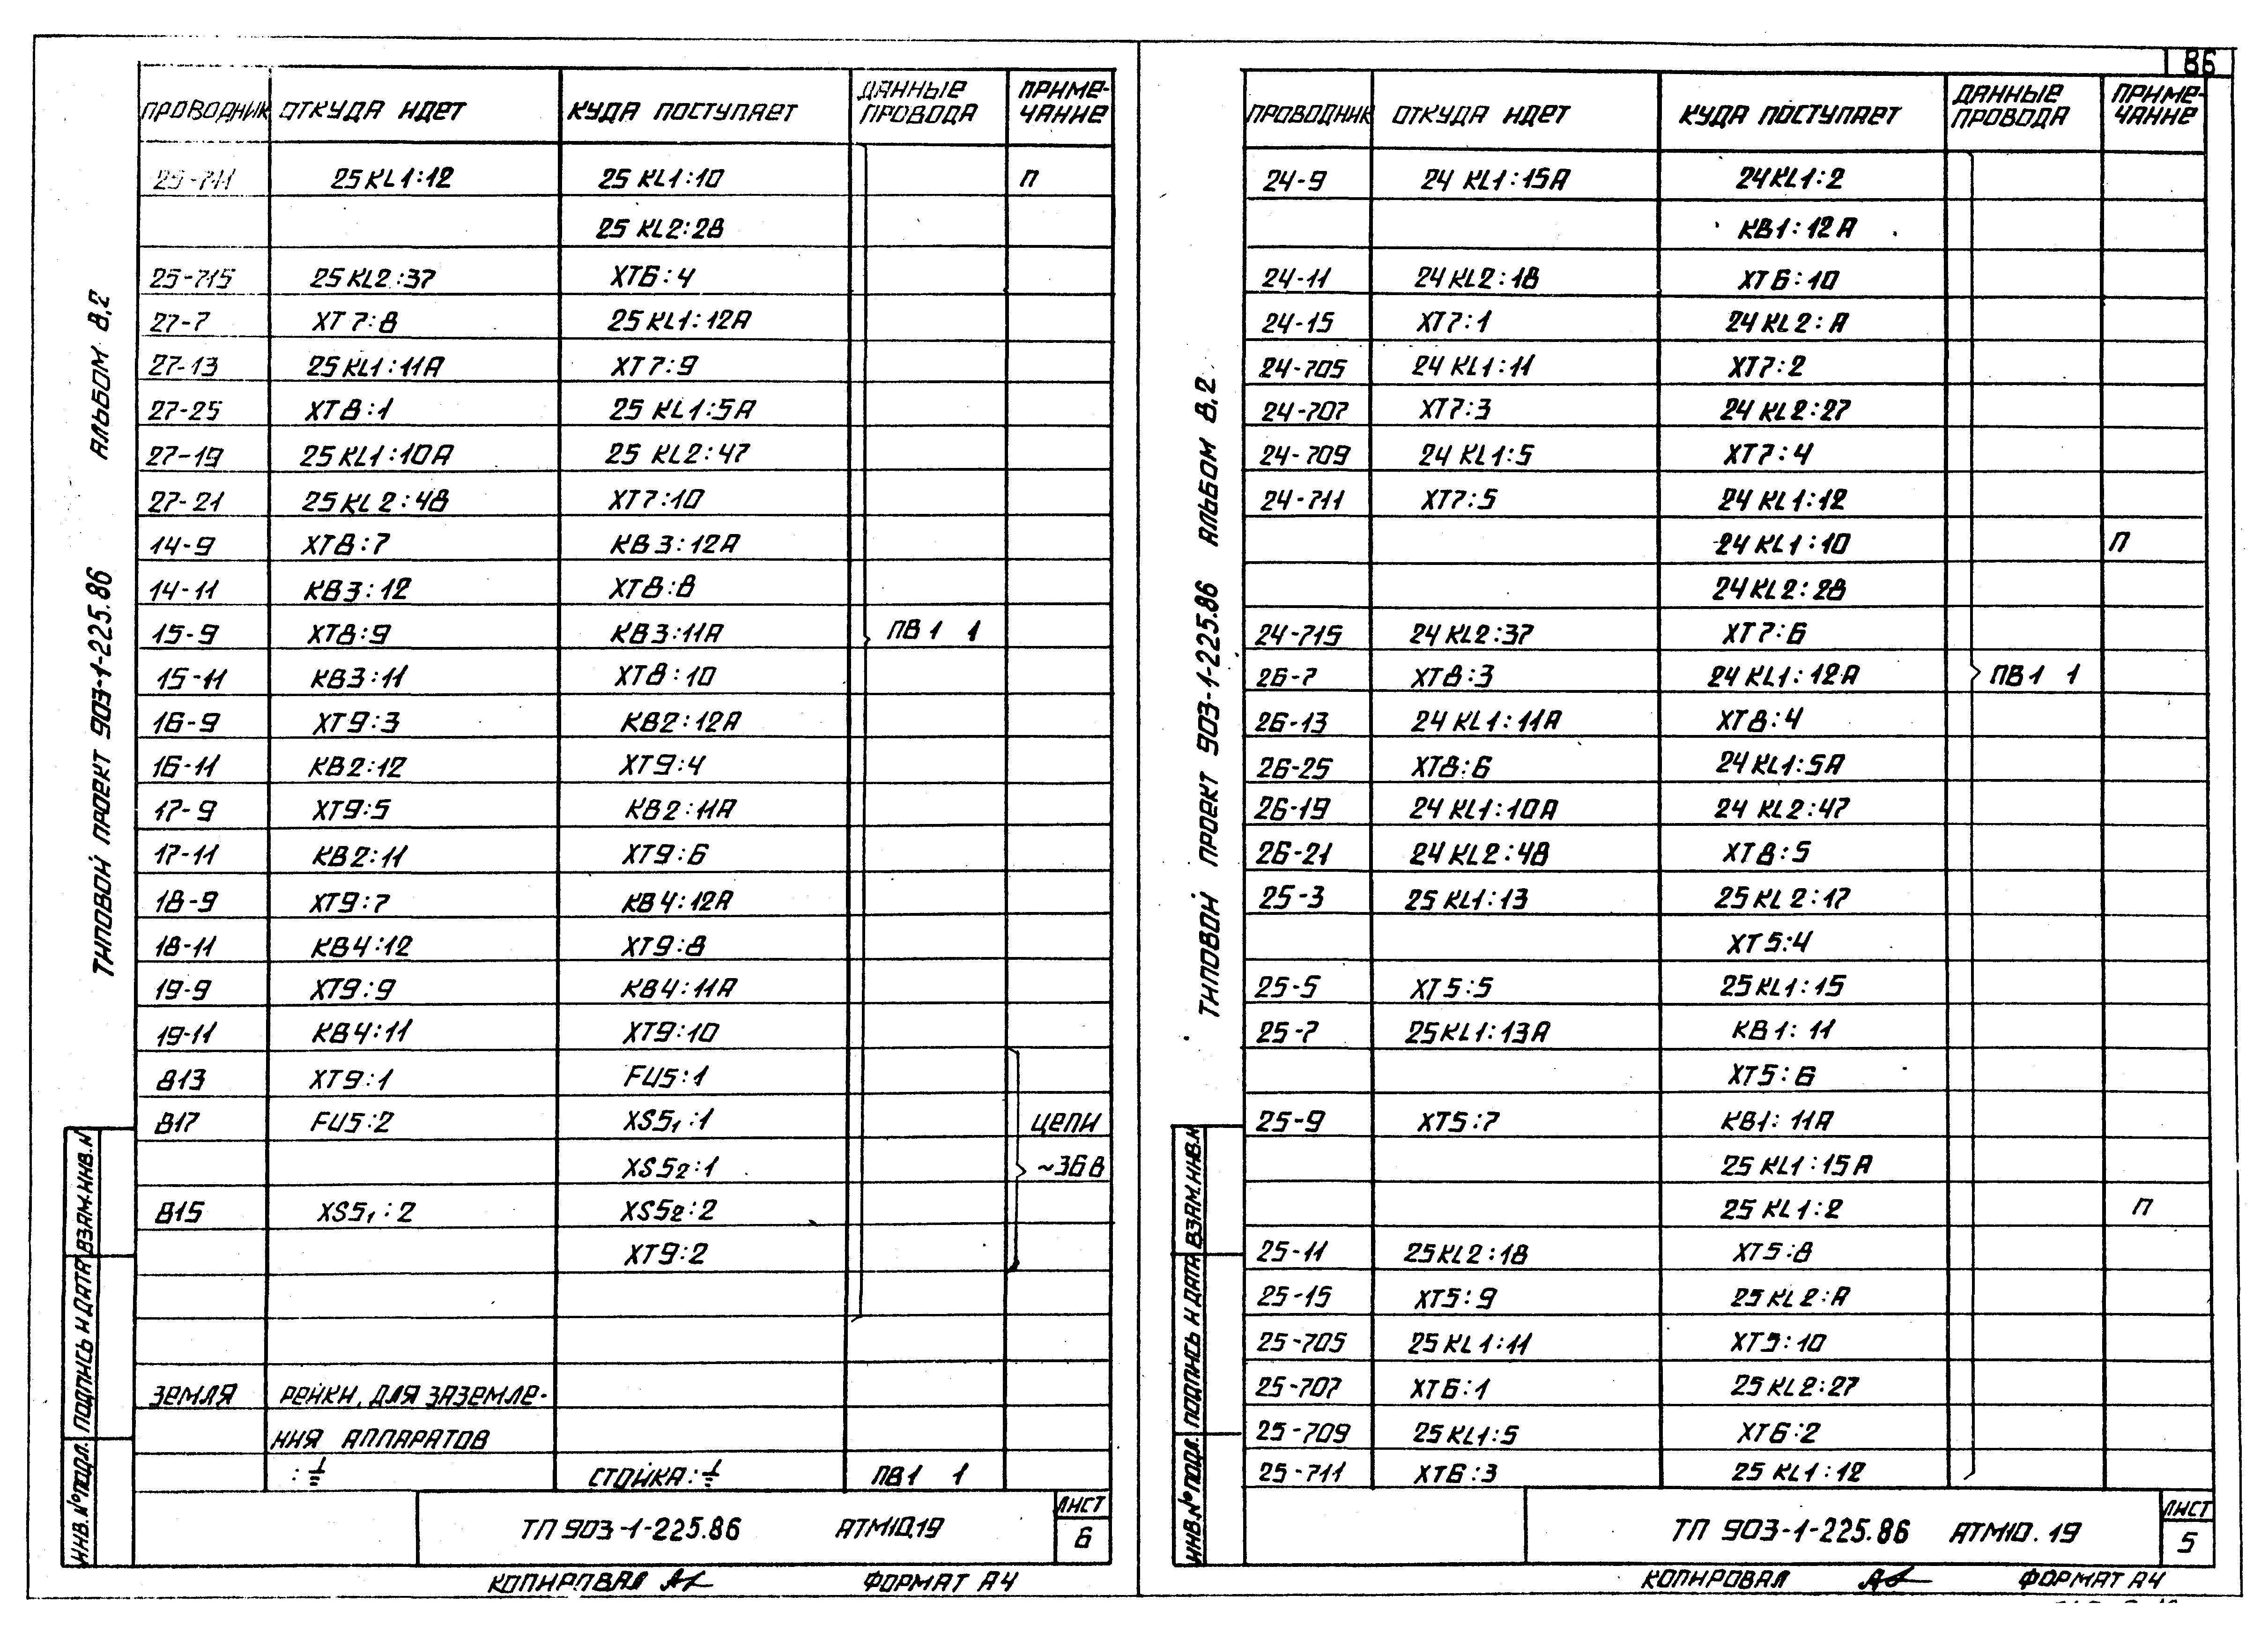 ПРОВОДНИК ОТКУДА ИДЕТ КУДА ПОСТУПАЕТ ДАННЫЕ ПРОВОДА ПРИМЕ-ЧАНИЕ
25-711 25KL1:12 25 KL1:10 П
25 KL2:28
25-715 25KL2:37 XT6:4
27-7 XT7:8 25KL1:12A
27-13 25KL1:11A XT7:9
27-25 XT8:1 25 KL1:5A
27-19 25KL1:10A 25 KL2:47
27-21 25KL2:48 XT7:10
14-9 XT8:7 KB3:12A
14-11 KB3:12 XT8:8
15-9 XT8:9 KB3:11A ПВ1 1
15-11 KB3:11 XT8:10
16-9 XT9:3 KB2:12A
16-11 KB2:12 XT9:4
17-9 XT9:5 KB2:11A
17-11 KB2:11 XT9:6
18-9 XT9:7 KB4:12A
18-11 KB4:12 XT9:8
19-9 XT9:9 KB4:11A
19-11 KB4:11 XT9:10
813 XT9:1 FU5:1
817 FU5:2 XS5₁:1 ЦЕПИ
XS5₂:1 ~36В
815 XS5₁:2 XS5₂:2
XT9:2
ЗЕМЛЯ РЕЙКИ ДЛЯ ЗАЗЕМЛЕ-
НИЯ АППАРАТОВ
:⏚ СТОЙКА:⏚ ПВ1 1
ТП 903-1-225.86 АТМ10.19 ЛИСТ 6
КОПИРОВАЛ ФОРМАТ А4
ТИПОВОЙ ПРОЕКТ 903-1-225.86 АЛЬБОМ 8.2
ИНВ.№ПОДЛ. ПОДПИСЬ И ДАТА ВЗАМ.ИНВ.№
86
ПРОВОДНИК ОТКУДА ИДЕТ КУДА ПОСТУПАЕТ ДАННЫЕ ПРОВОДА ПРИМЕ-ЧАНИЕ
24-9 24 KL1:15A 24KL1:2
KB1:12A
24-11 24KL2:18 XT6:10
24-15 XT7:1 24KL2:A
24-705 24 KL1:11 XT7:2
24-707 XT7:3 24KL2:27
24-709 24 KL1:5 XT7:4
24-711 XT7:5 24 KL1:12
24 KL1:10 П
24KL2:28
24-715 24KL2:37 XT7:6
26-7 XT8:3 24KL1:12A ПВ1 1
26-13 24 KL1:11A XT8:4
26-25 XT8:6 24KL1:5A
26-19 24 KL1:10A 24 KL2:47
26-21 24KL2:48 XT8:5
25-3 25KL1:13 25KL2:17
XT5:4
25-5 XT5:5 25KL1:15
25-7 25KL1:13A KB1:11
XT5:6
25-9 XT5:7 KB1:11A
25 KL1:15A
25 KL1:2 П
25-11 25KL2:18 XT5:8
25-15 XT5:9 25KL2:A
25-705 25KL1:11 XT5:10
25-707 XT6:1 25KL2:27
25-709 25KL1:5 XT6:2
25-711 XT6:3 25 KL1:12
ТП 903-1-225.86 АТМ10.19 ЛИСТ 5
КОПИРОВАЛ ФОРМАТ А4
ТИПОВОЙ ПРОЕКТ 903-1-225.86 АЛЬБОМ 8.2
ИНВ.№ПОДЛ. ПОДПИСЬ И ДАТА ВЗАМ.ИНВ.№